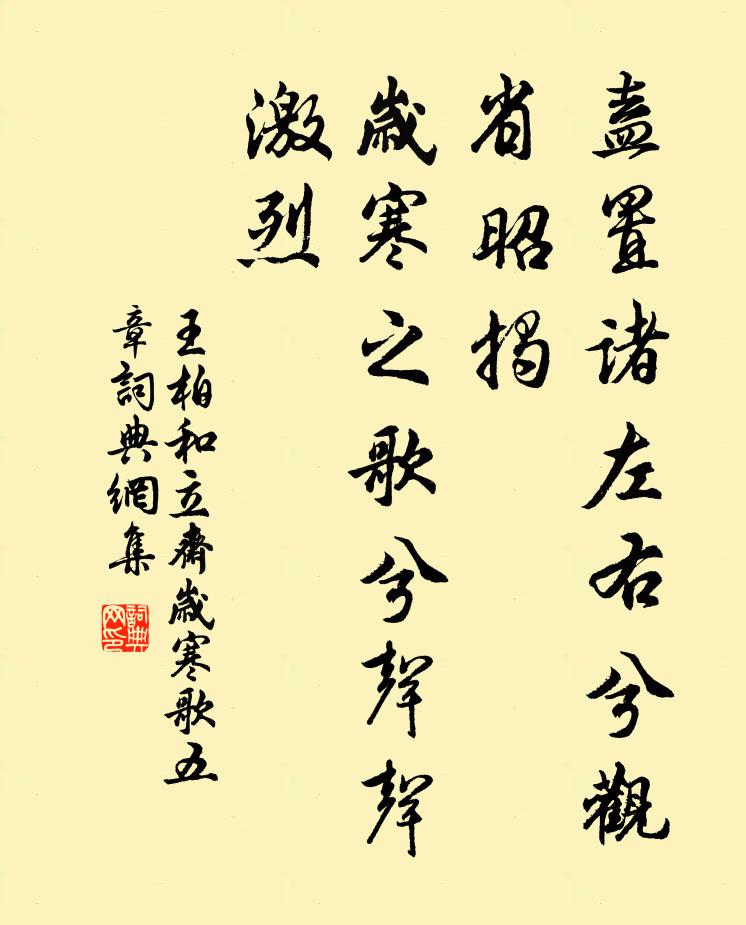 盍置諸左右兮觀
省昭揭
歲寒之歌兮聲聲
激烈
王柏和立齋歲寒歌五
章詞典網集
詞典網印